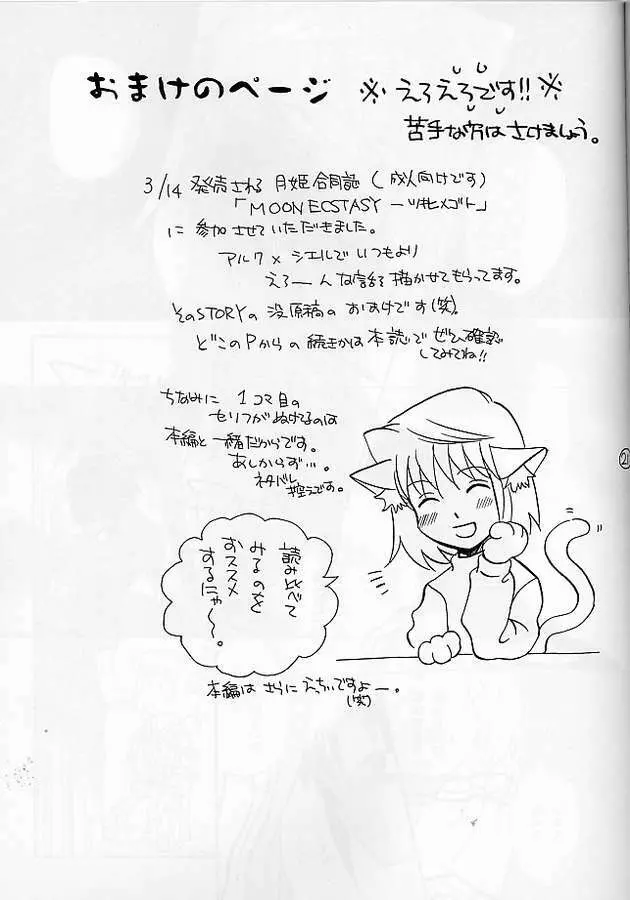 おまけのページ ※えろえろです!!※
苦手な方はさけましょう。
3/14 発売される 月姫合同誌 (成人向けです)
「MOON ECSTASY ーツキヒメゴト」
に 参加させていただきました。
アルク×シエルで いつもより
えろーんな話を描かせてもらってます。
そのSTORYの 没原稿の おまけです(笑)
どこのPからの 続きかは 本誌で ぜひ確認
してみてね!!
ちなみに 1コマ目の
セリフがぬけてるのは
本編と一緒だからです。
あしからず…。
ネタバレ
控えです。
読み比べて
みるのを
おススメ
するにゃ〜〜。
本編は さらに えちぃですよー。
(笑)
2